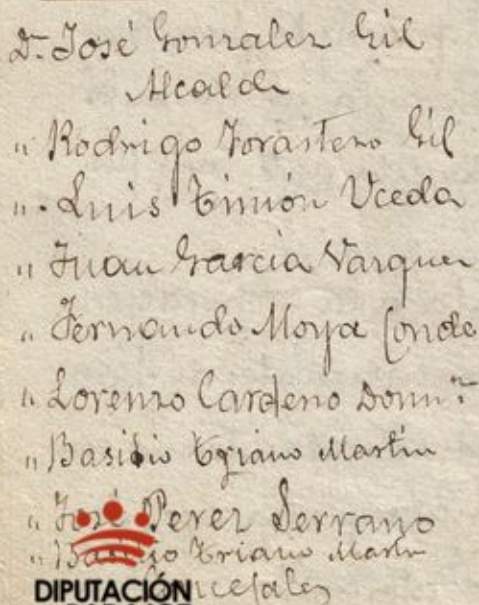 D. José Gonzalez Gil
Alcalde
" Rodrigo Forastero Gil
". Luis Timón Uceda
" Juan Garcia Vazquez
" Fernando Moya Conde
" Lorenzo Cardeno Domz
" Basilio Triano Martin
" José Perez Serrano
" Basilio Triano Martin
Concejales
DIPUTACIÓN